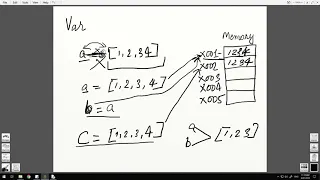 Var
Memory
a [1,2,34]
x001 1234
x002 1234
a = [1,2,3,4]
x003
x004
b = a
x005
C = [1,2,3,4]
a
b [1,23]